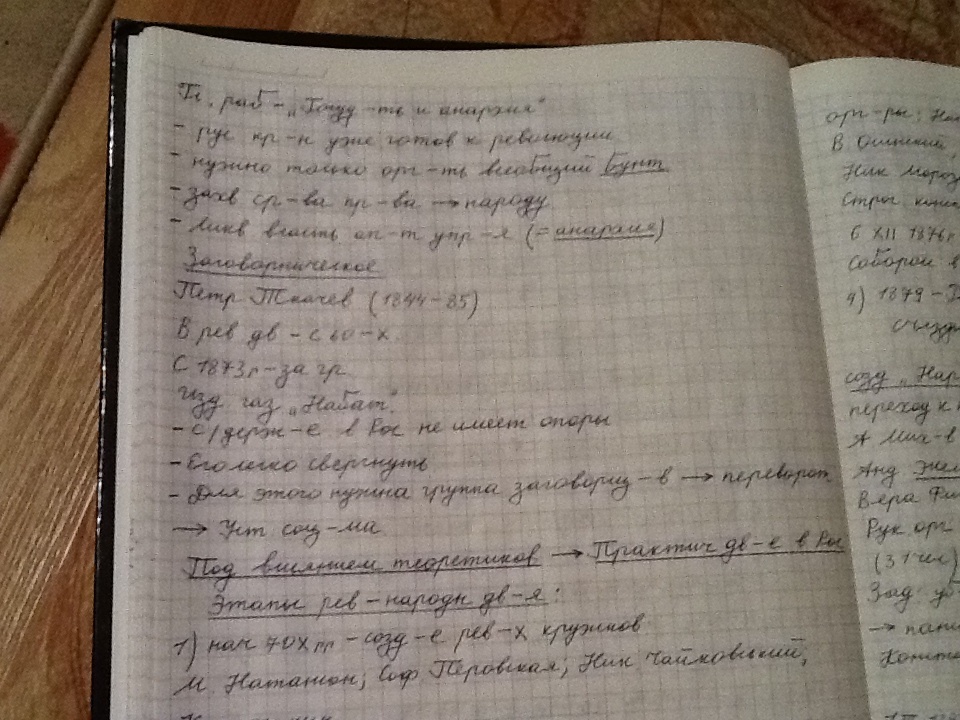 Гл. раб - „Госуд-ть и анархия"
- рус кр-н уже готов к революции
- нужно только орг-ть всеобщий бунт
- захв ср-ва пр-ва → народу
- ликв власть ап-т упр-я (= анархия)
Заговорническое
Петр Ткачев (1844-85)
В рев дв - с 60-х
С 1873г - за гр.
Изд. газ „Набат".
- С/держ-е в Рос не имеет опоры
- Его легко свергнуть
- Для этого нужна группа заговорщ-в → переворот
→ Уст соц-ма
Под влиянием теоретиков → Практич дв-е в Рос
Этапы рев-народн дв-я:
1) нач 70х гг - созд-е рев-х кружков
М. Натансон; Соф Перовская; Ник Чайковский,
орг-ры:
В. Осинский,
Ник Мороз
Строг
6 XII 1876г
Соборой
4) 1879 -
съезд
созд „Нар
переход к
А Мих-в
Анд Жел
Вера Фиг
Рук орг
(31 чел)
Зад
→